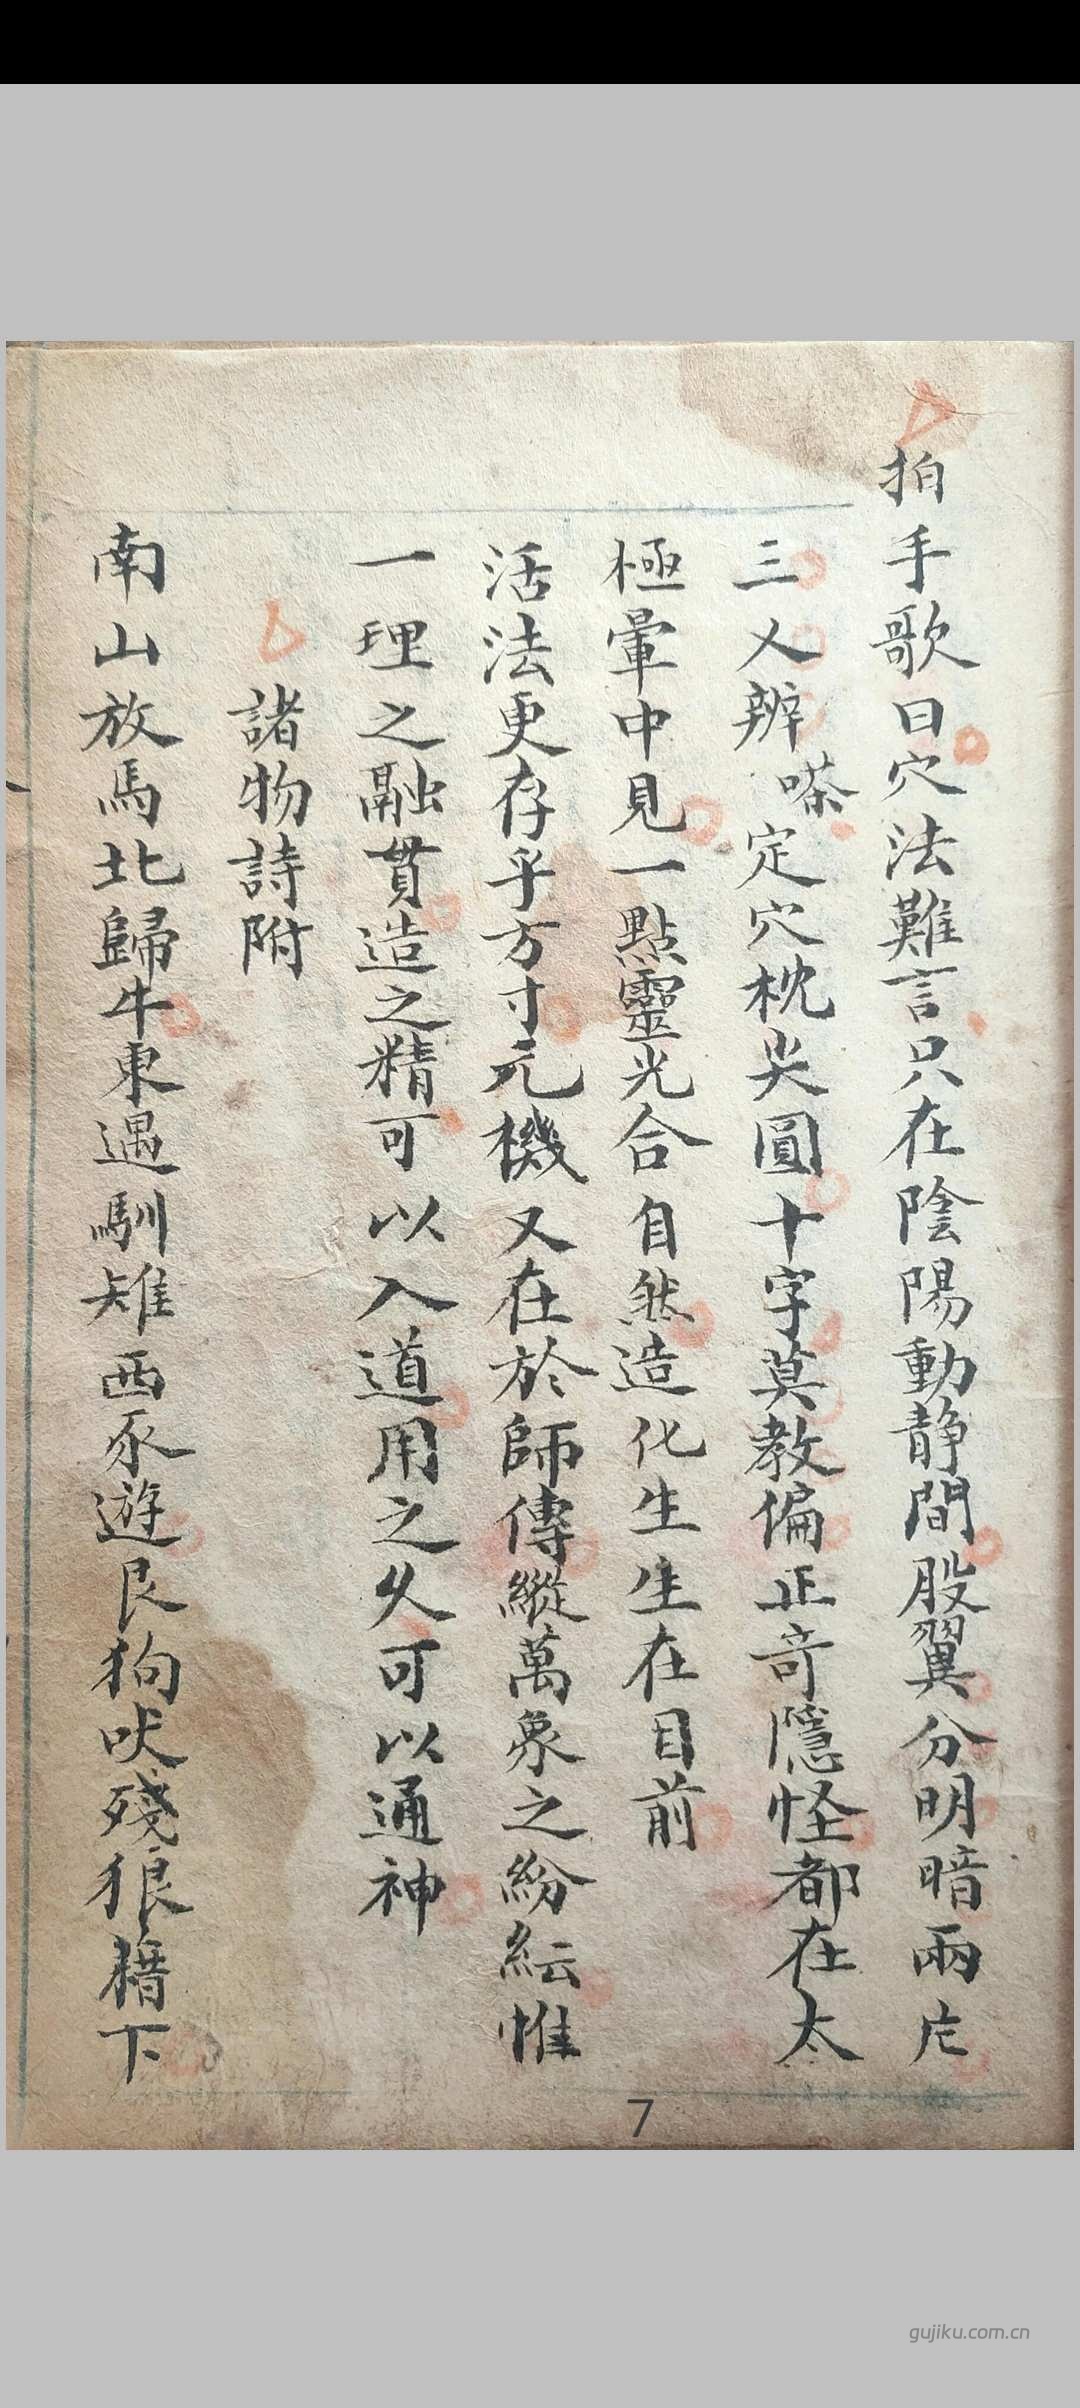 拍手歌曰穴法難言只在陰陽動静間股翼分明暗兩片
三人辨嗏定穴枕尖圓十字莫教偏正奇隱怪都在太
極暈中見一點靈光合自然造化生生在目前
活法更存乎方寸元機又在於師傳縱萬象之紛紜惟
一理之融貫造之精可以入道用之久可以通神
諸物詩附
南山放馬北歸牛東遇馴雉西豕遊艮狗吠殘狼藉下
7
gujiku.com.cn